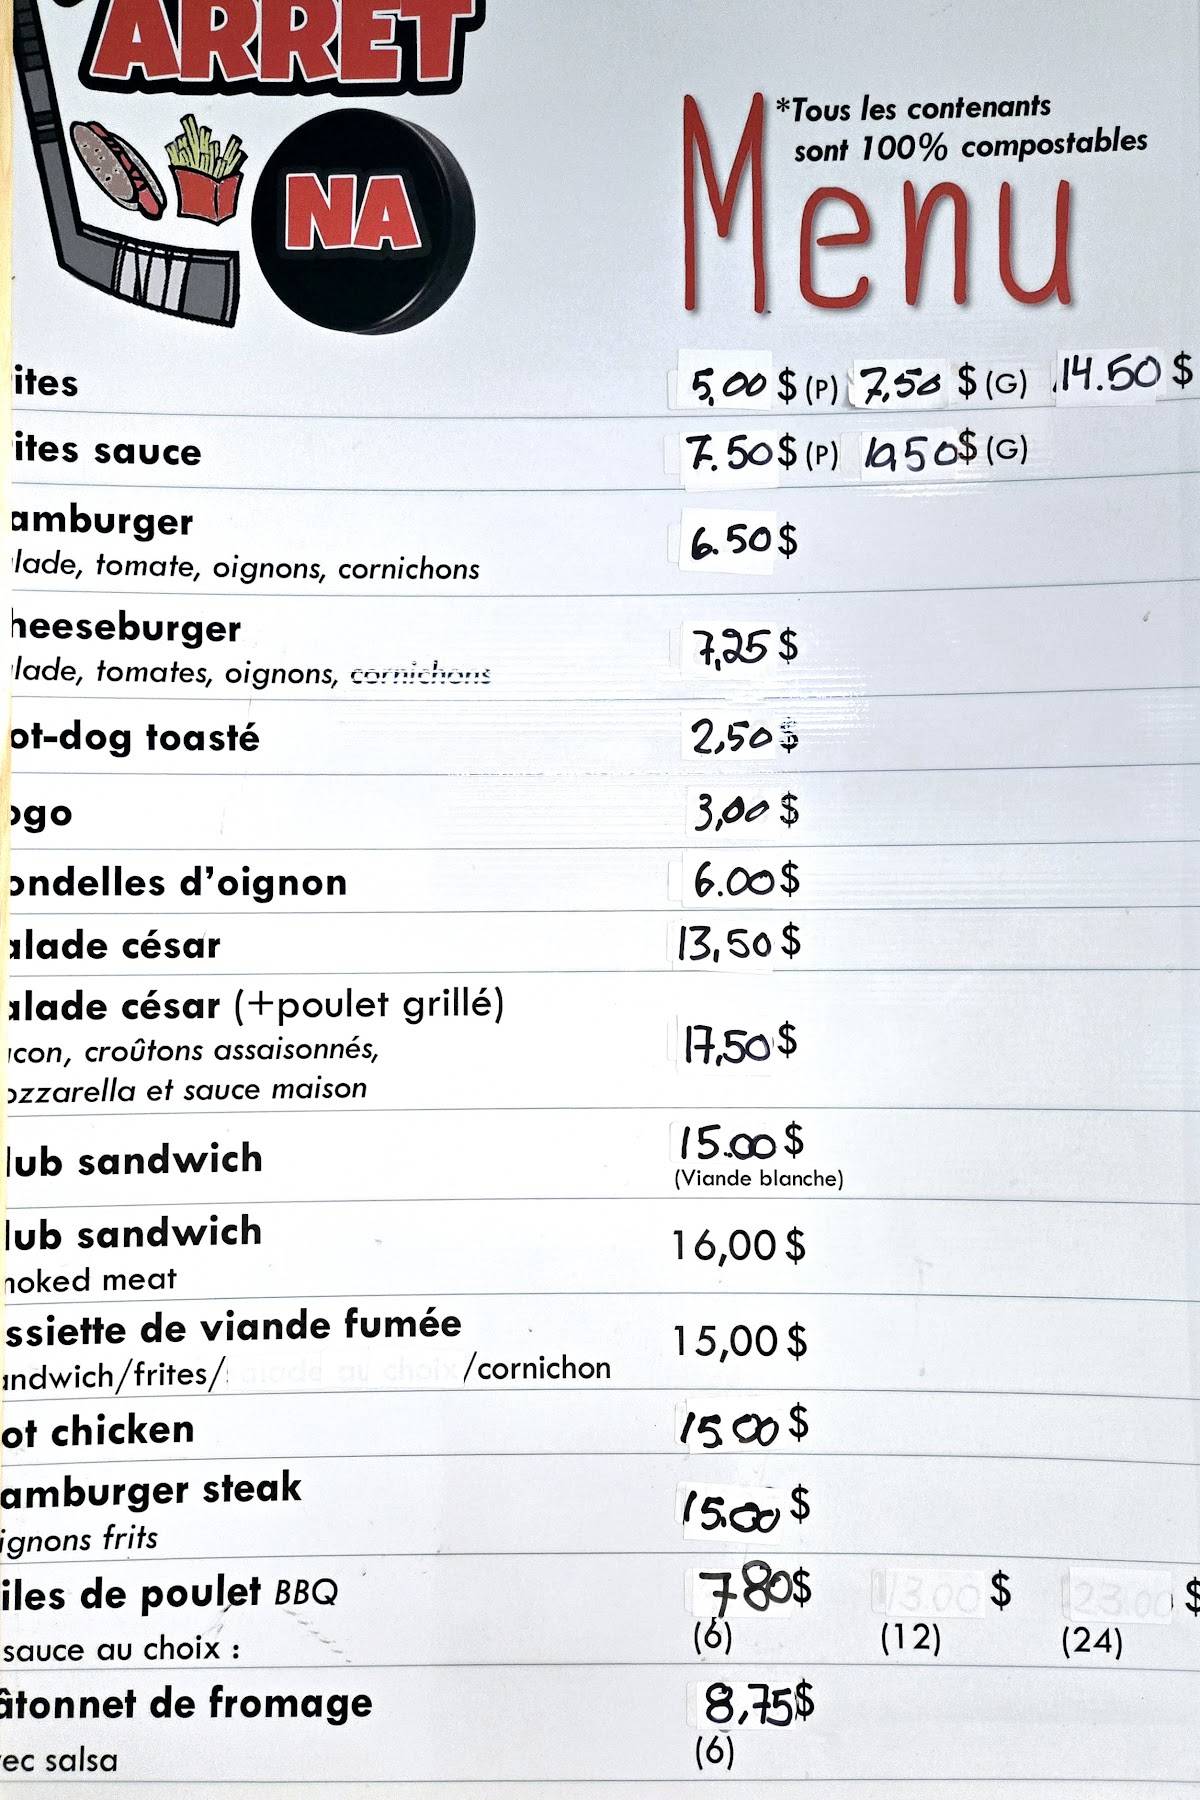 ARRÊT
NA
*Tous les contenants
sont 100% compostables
Menu
ites 5,00 $ (P) 7,50 $ (G) 14.50 $
ites sauce 7.50 $ (P) 10,50 $ (G)
amburger 6.50 $
lade, tomate, oignons, cornichons
heeseburger 7,25 $
lade, tomates, oignons, cornichons
ot-dog toasté 2,50 $
ogo 3,00 $
ondelles d'oignon 6.00 $
alade césar 13,50 $
alade césar (+poulet grillé) 17,50 $
acon, croûtons assaisonnés,
ozzarella et sauce maison
lub sandwich 15.00 $
(Viande blanche)
lub sandwich 16,00 $
moked meat
ssiette de viande fumée 15,00 $
andwich/frites/salade au choix/cornichon
ot chicken 15.00 $
amburger steak 15.00 $
ignons frits
iles de poulet BBQ 7 80 $ 13.00 $ 23.00 $
(6) (12) (24)
sauce au choix :
âtonnet de fromage 8,75 $
vec salsa (6)